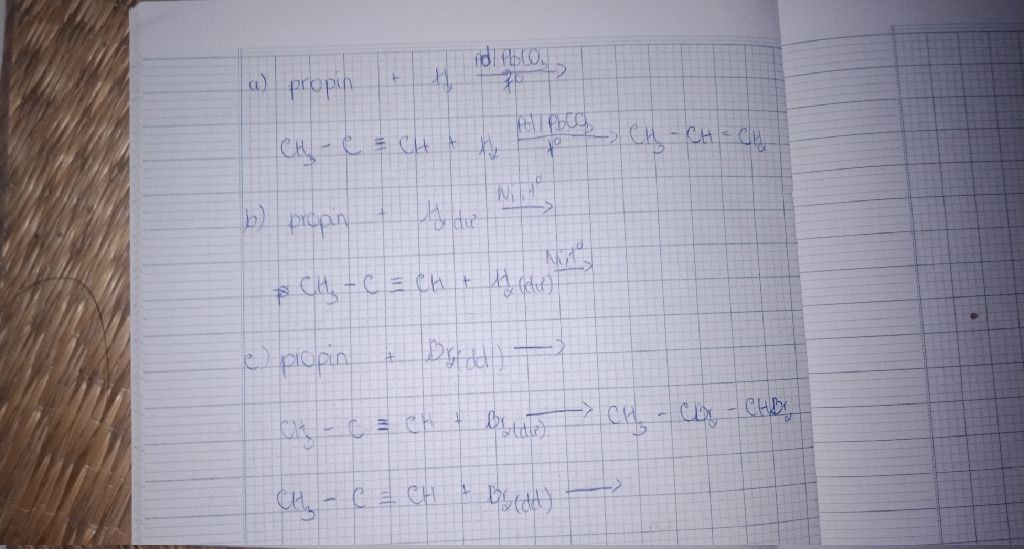 a) propin + H₂ Pd/PbCO₃, t° →
CH₃ - C ≡ CH + H₂ Pd/PbCO₃, t° → CH₃ - CH = CH₂
b) propin + H₂ dư Ni, t° →
CH₃ - C ≡ CH + H₂ (dư) Ni, t° →
c) propin + Br₂ (dd) →
CH₃ - C ≡ CH + Br₂ (dư) → CH₃ - CBr₂ - CHBr₂
CH₃ - C ≡ CH + Br₂ (dd) →